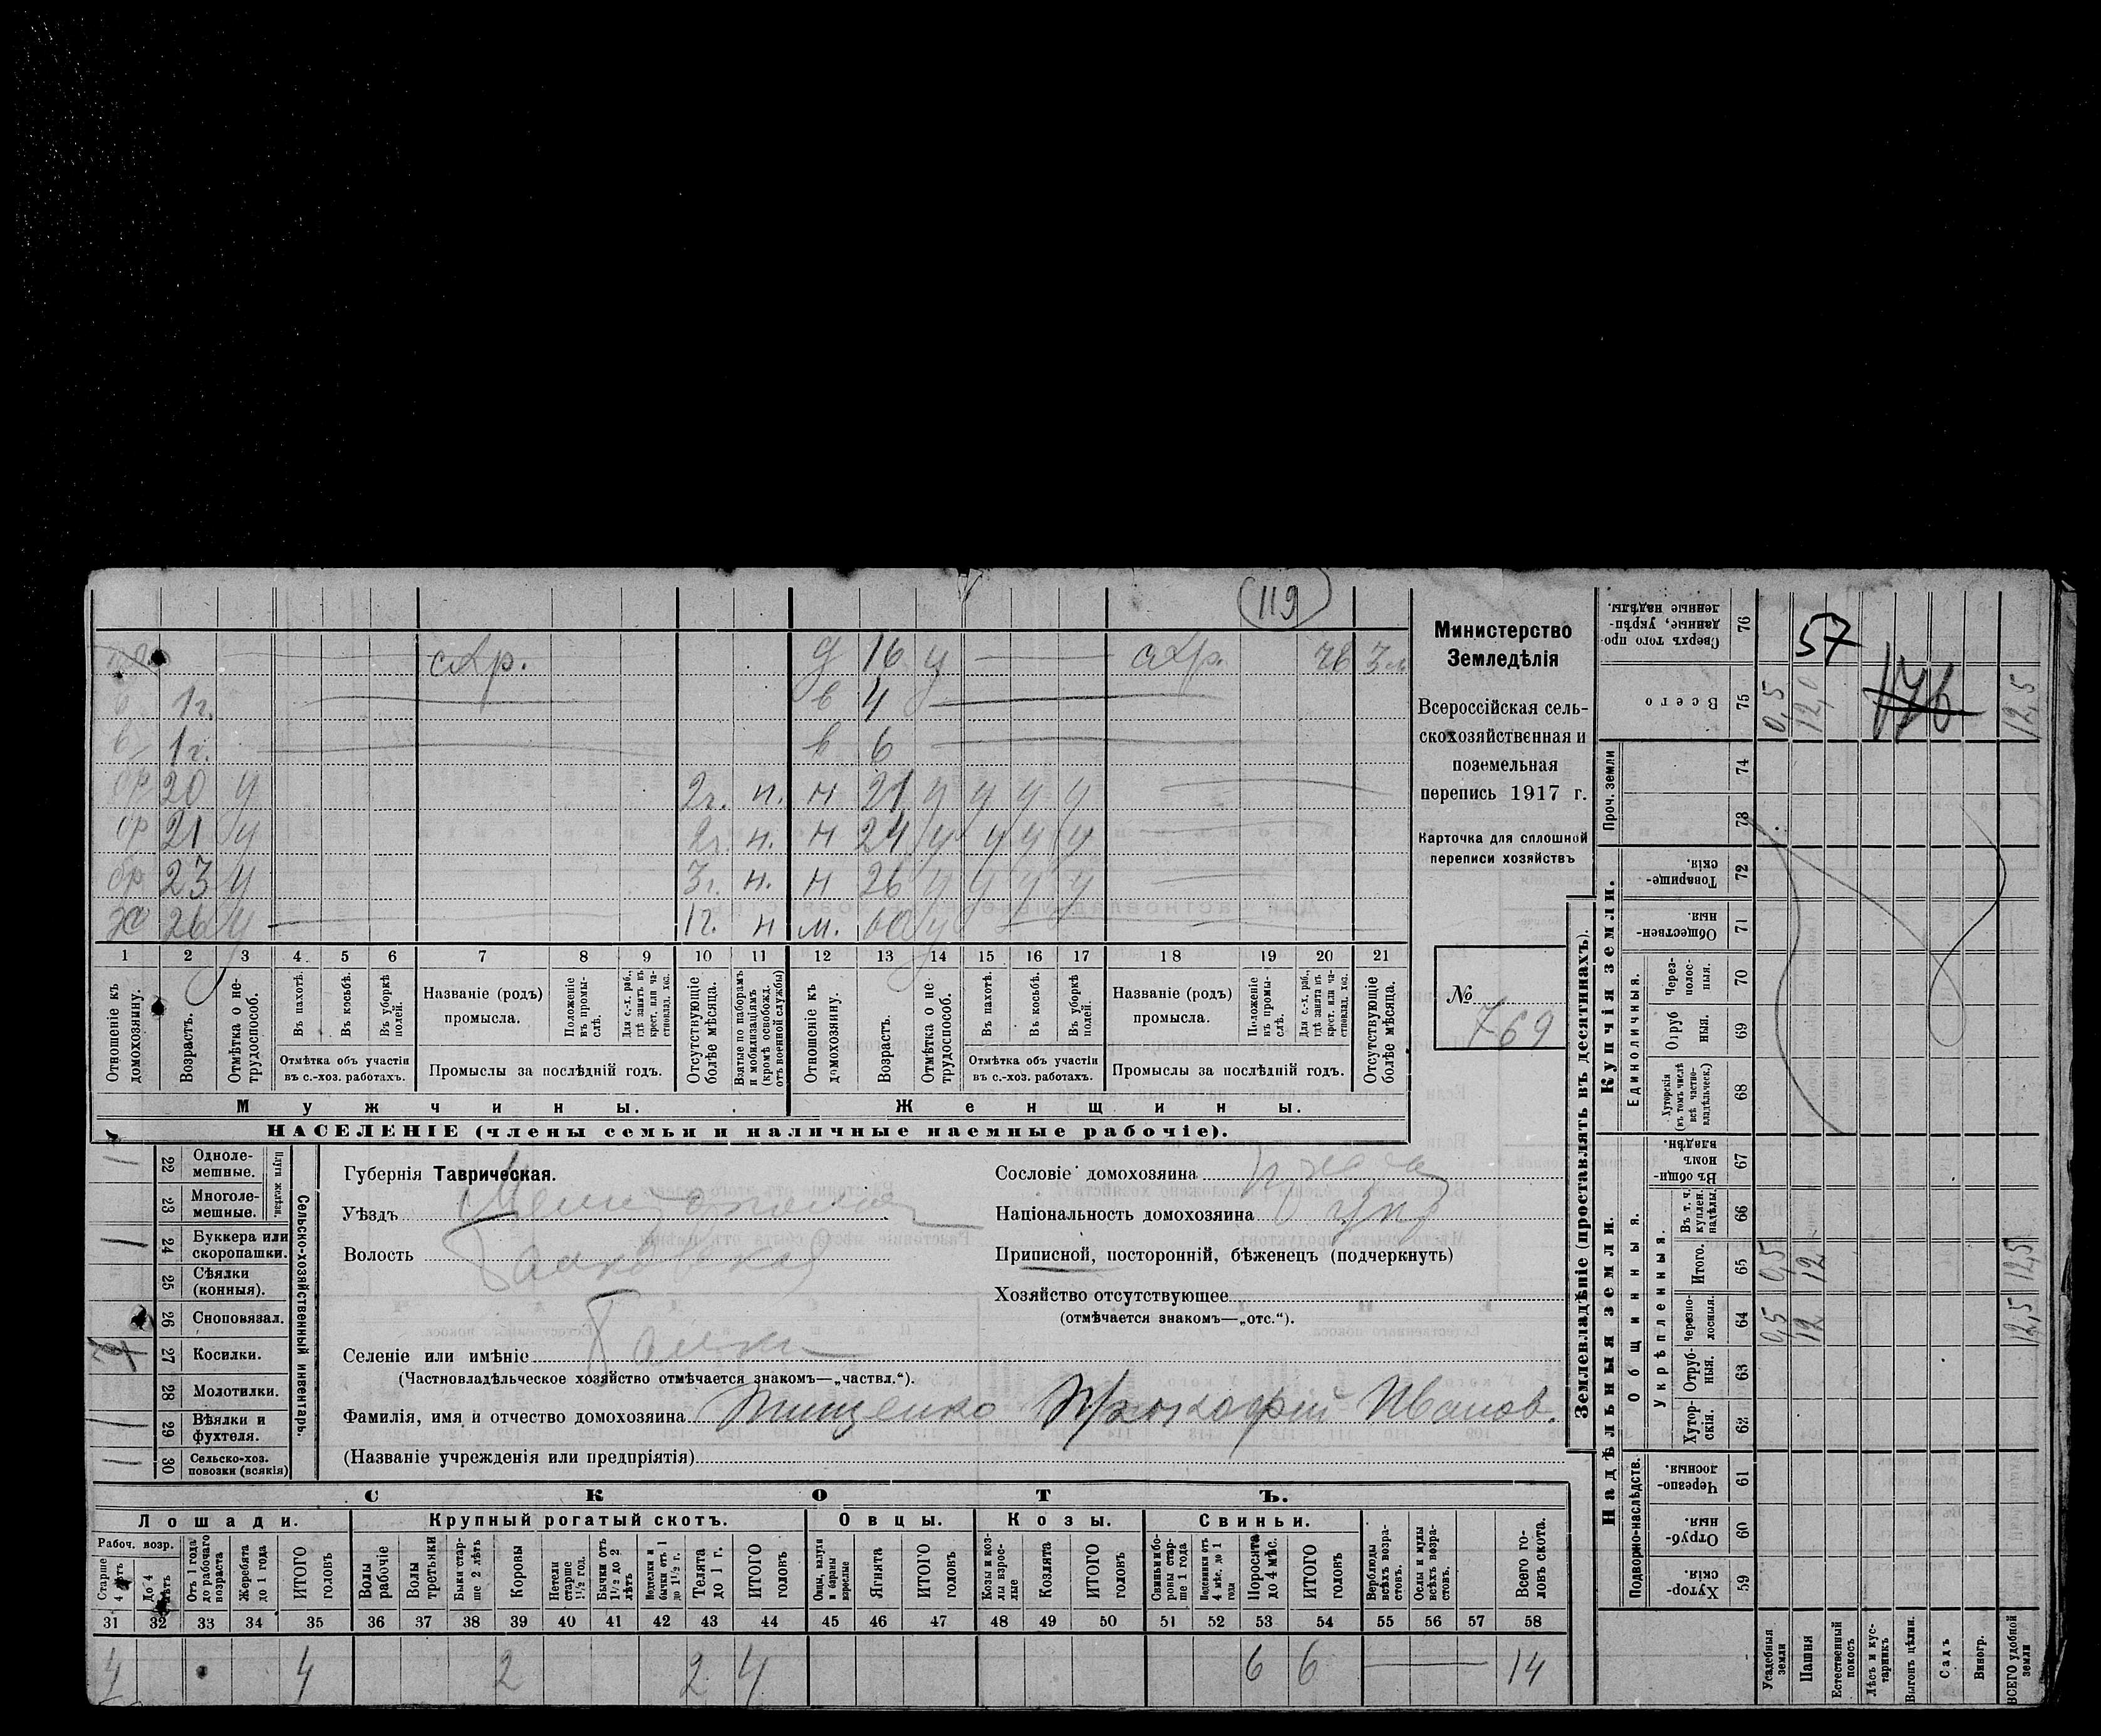 119
схр. д 16 ч схр. чв 3 м
1 г. в 4
в 1 г. в 6
бр 20 ч 2 г. н. н 21 ч ч ч ч
бр 21 ч 2 г. н. н 24 ч ч ч ч
бр 23 ч 3 г. н. н 26 ч ч ч ч
хо 26 ч 1 г. н м. 60 ч
1 2 3 4 5 6 7 8 9 10 11 12 13 14 15 16 17 18 19 20 21
Отношеніе къ домохозяину.
Возрастъ.
Отмѣтка о нетрудоспособ.
Въ пахотѣ.
Въ косьбѣ.
Въ уборкѣ полей.
Отмѣтка объ участіи въ с.-хоз. работахъ.
Названіе (родъ) промысла.
Положеніе въ промыслѣ.
Для с.-х. раб., гдѣ занятъ въ крест. или частновлад. хоз.
Промыслы за послѣдній годъ.
Отсутствующіе болѣе мѣсяца.
Взятые по наборамъ и мобилизаціямъ (кромѣ освобожд. отъ военной службы)
Отношеніе къ домохозяину.
Возрастъ.
Отмѣтка о нетрудоспособ.
Въ пахотѣ.
Въ косьбѣ.
Въ уборкѣ полей.
Отмѣтка объ участіи въ с.-хоз. работахъ.
Названіе (родъ) промысла.
Положеніе въ промыслѣ.
Для с.-х. раб., гдѣ занята въ крест. или частновлад. хоз.
Промыслы за послѣдній годъ.
Отсутствующіе болѣе мѣсяца.
Мужчины. Женщины.
НАСЕЛЕНІЕ (члены семьи и наличные наемные рабочіе).
Министерство
Земледѣлія
Всероссійская сель-
скохозяйственная и
поземельная
перепись 1917 г.
Карточка для сплошной
переписи хозяйствъ
№ 769
Сельско-хозяйственный инвентарь.
Плуги желѣзн.
22 Одноле-
мешные.
23 Многоле-
мешные.
24 Буккера или
скоропашки.
25 Сѣялки
(конныя).
26 Сноповязал.
27 Косилки.
28 Молотилки.
29 Вѣялки и
фухтеля.
30 Сельско-хоз.
повозки (всякія)
Губернія Таврическая.
Уѣздъ Мелитопольск
Волость Балковская
Селеніе или имѣніе Балки
(Частновладѣльческое хозяйство отмѣчается знакомъ—„частвл.“).
Фамилія, имя и отчество домохозяина Тищенко Прокофій Иванов.
(Названіе учрежденія или предпріятія)
Сословіе домохозяина
Національность домохозяина укр
Приписной, посторонній, бѣженецъ (подчеркнуть)
Хозяйство отсутствующее
(отмѣчается знакомъ—„отс.“).
СКОТЪ.
Лошади. Крупный рогатый скотъ. Овцы. Козы. Свиньи.
Рабоч. возр.
Старше 4 лѣтъ
До 4 лѣтъ
Отъ 1 года до рабочаго возраста
Жеребята до 1 года
ИТОГО головъ
Волы рабочіе
Волы третьяки
Быки старше 2 лѣтъ
Коровы
Нетели старше 1½ год.
Бычки отъ 1½ до 2 лѣтъ
Подтелки и бычки отъ 1 до 1½ г.
Телята до 1 г.
ИТОГО головъ
Овцы, валухи и бараны взрослые
Ягнята
ИТОГО головъ
Козы и козлы взрослые
Козлята
ИТОГО головъ
Свиньи и боровы старше 1 года
Подсвинки отъ 4 мѣс. до 1 года
Поросята до 4 мѣс.
ИТОГО головъ
Верблюды всѣхъ возрастовъ.
Ослы и мулы всѣхъ возрастовъ.
Всего головъ скота.
31 32 33 34 35 36 37 38 39 40 41 42 43 44 45 46 47 48 49 50 51 52 53 54 55 56 57 58
4 4 2 2 4 6 6 14
Землевладѣніе (проставлять въ десятинахъ).
Надѣльныя земли. Купчія земли.
Подворно-наслѣдств.
Общинныя.
Укрѣпленныя.
Единоличныя.
Проч. земли
Сверхъ того проданные, укрѣпленные надѣлы. 76 57
Всего 75 0,5 12,0 176 12,5
74
73
Товарищескія. 72
Общественныя 71
Черезполосныя. 70
Отрубныя. 69
Хуторскія (въ томъ числѣ всѣ частновладѣльческ.) 68
Въ общинномъ владѣн. 67
Въ т. ч. куплен. надѣлы. 66
Итого. 65 0,5 12 12,5
Черезполосныя. 64 0,5 12 12,5
Отрубныя. 63
Хуторскія. 62
Черезполосныя. 61
Отрубныя. 60
Хуторскія. 59
Усадебныя земли
Пашня
Естественный покосъ
Лѣсъ и кустарникъ
Выгонъ цѣлин.
Садъ
Виногр.
ВСЕГО удобной земли